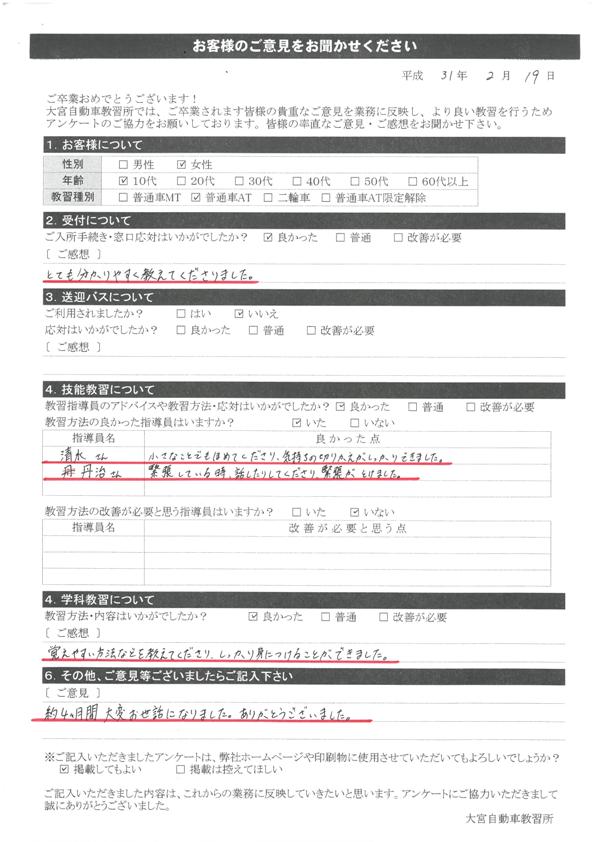 お客様のご意見をお聞かせください
平成 31年 2月 19日
ご卒業おめでとうございます！
大宮自動車教習所では、ご卒業されます皆様の貴重なご意見を業務に反映し、より良い教習を行うため
アンケートのご協力をお願いしております。皆様の率直なご意見・ご感想をお聞かせ下さい。
1. お客様について
性別 □ 男性 ☑ 女性
年齢 ☑ 10代 □ 20代 □ 30代 □ 40代 □ 50代 □ 60代以上
教習種別 □ 普通車MT ☑ 普通車AT □ 二輪車 □ 普通車AT限定解除
2. 受付について
ご入所手続き・窓口応対はいかがでしたか？ ☑ 良かった □ 普通 □ 改善が必要
[ ご感想 ]
とても分かりやすく教えてくださりました。
3. 送迎バスについて
ご利用されましたか？ □ はい ☑ いいえ
応対はいかがでしたか？ □ 良かった □ 普通 □ 改善が必要
[ ご感想 ]
4. 技能教習について
教習指導員のアドバイスや教習方法・応対はいかがでしたか？ ☑ 良かった □ 普通 □ 改善が必要
教習方法の良かった指導員はいますか？ ☑ いた □ いない
指導員名 良かった点
清水さん 小さなことでもほめてくださり、気持ちの切りかえがしっかりできました。
丹治さん 緊張している時、話したりしてくださり、緊張がとけました。
教習方法の改善が必要と思う指導員はいますか？ □ いた ☑ いない
指導員名 改善が必要と思う点
4. 学科教習について
教習方法・内容はいかがでしたか？ ☑ 良かった □ 普通 □ 改善が必要
[ ご感想 ]
覚えやすい方法などを教えてくださり、しっかり身につけることができました。
6. その他、ご意見等ございましたらご記入下さい
[ ご意見 ]
約4ヵ月間 大変お世話になりました。ありがとうございました。
※ご記入いただきましたアンケートは、弊社ホームページや印刷物に使用させていただいてもよろしいでしょうか？
☑ 掲載してもよい □ 掲載は控えてほしい
ご記入いただきました内容は、これからの業務に反映していきたいと思います。アンケートにご協力いただきまして
誠にありがとうございました。
大宮自動車教習所